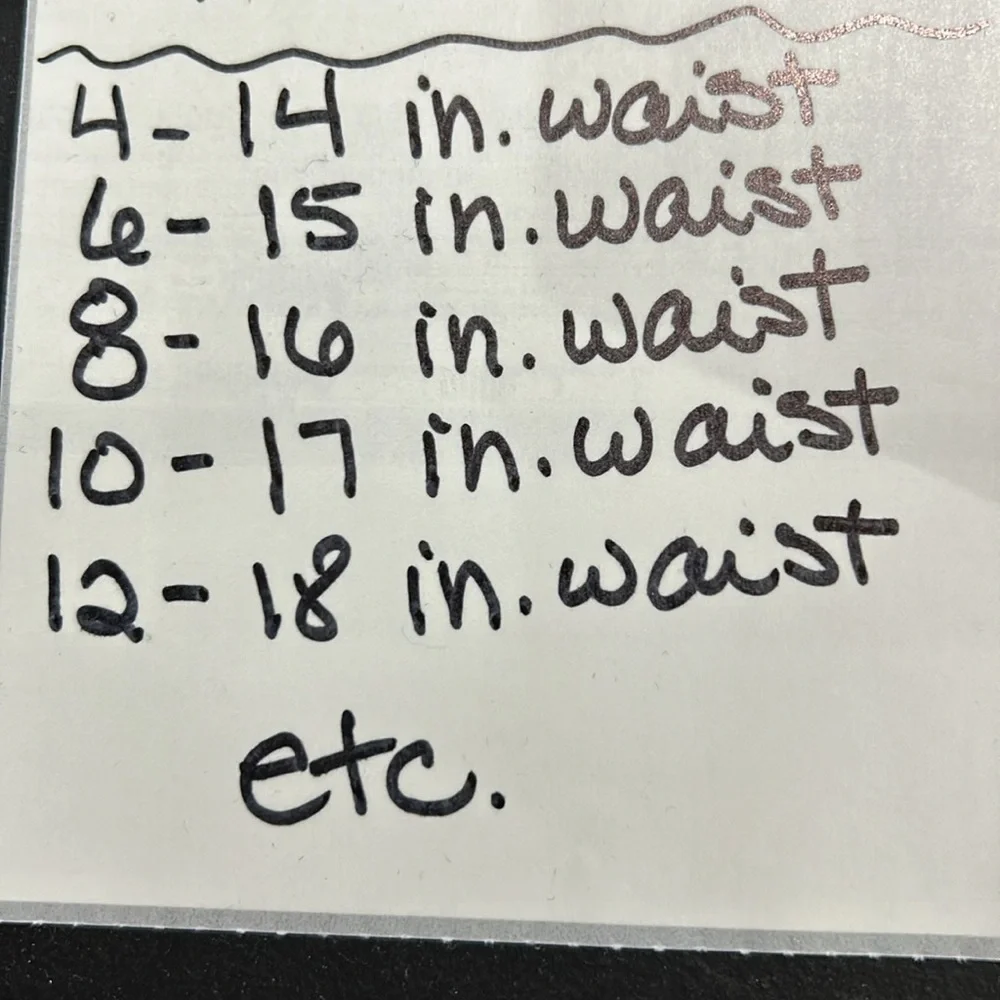 4- 14 in. waist
6- 15 in. waist
8- 16 in. waist
10- 17 in. waist
12- 18 in. waist
etc.